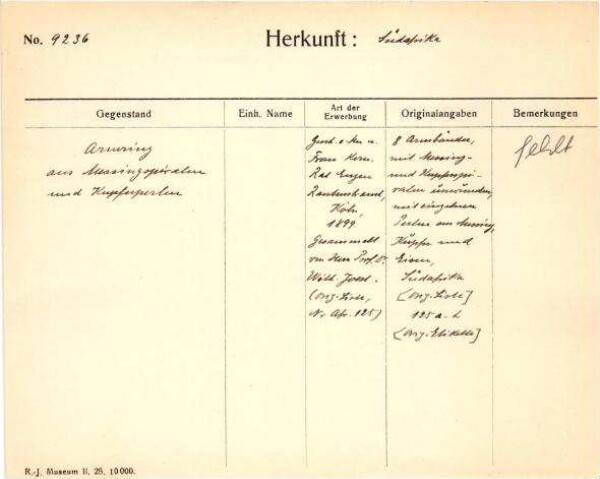 No. 9236
Herkunft: Südafrika
Gegenstand
Einh. Name
Art der Erwerbung
Originalangaben
Bemerkungen
Armring
aus Messingspiralen
und Kupferperlen
Gesch. v. Hrn u.
Frau Kom.
Rat Eugen
Rautenstrauch,
Köln,
1899
Gesammelt
von Herr Prof. Dr.
Wilh. Joest.
(Orig. Liste,
No Afr. 125)
8 Armbänder,
mit Messing-
und Kupferspi-
ralen umwunden,
mit einzelnen
Perlen aus Messing,
Kupfer und
Eisen,
Südafrika
[Orig. Liste]
125 a-h
[Orig. Etikette]
fehlt
R.-J. Museum II. 28. 10000.